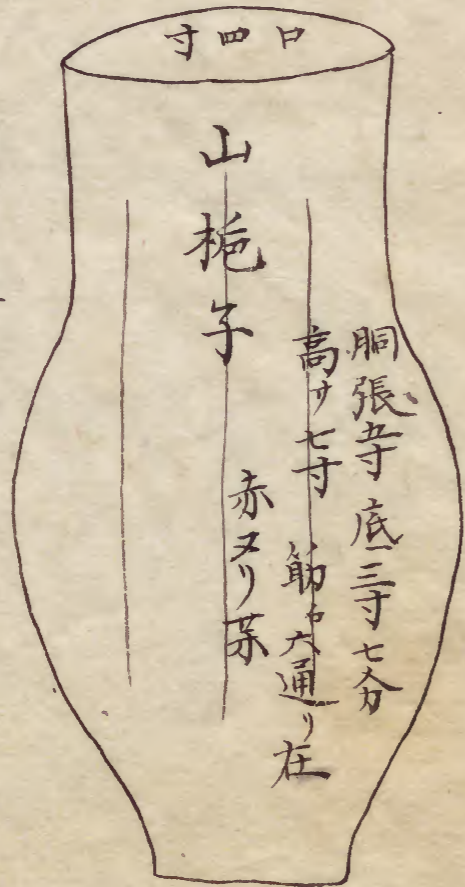 口四寸
山梔子
胴張五寸 底三寸七分
高サ七寸 筋六通リ在
赤ヌリ